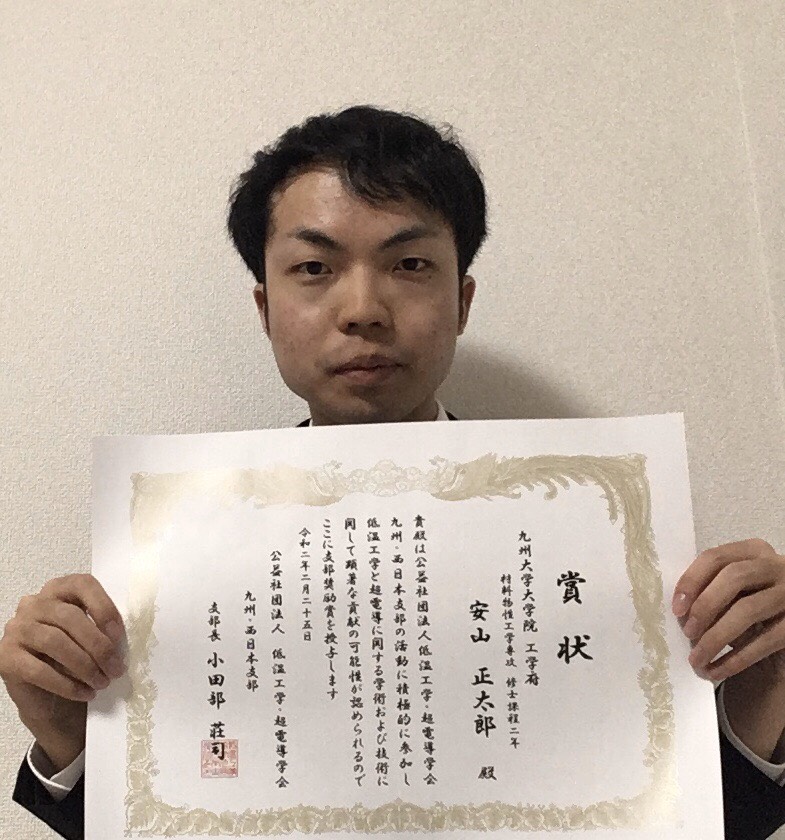 賞状
九州大学大学院 工学府
材料物性工学専攻 修士課程二年
安山 正太郎 殿
貴殿は公益社団法人低温工学・超電導学会
九州・西日本支部の活動に積極的に参加し
低温工学と超電導に関する学術および技術に
関して顕著な貢献の可能性が認められるので
ここに支部奨励賞を授与します
令和二年二月二十五日
公益社団法人 低温工学・超電導学会
九州・西日本支部
支部長 小田部 荘司